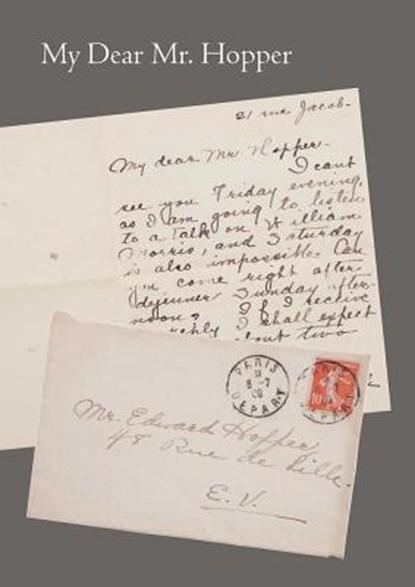 My Dear Mr. Hopper
21 rue Jacob-
My dear Mr. Hopper-
I cant
see you Friday evening,
as I am going to listen
to a talk on William
Morris, and Saturday
is also impossible. Can
you come right after
dejeuner Sunday after-
noon? If I receive
I shall expect
about two
PARIS
DEPART
10
Mr. Edward Hopper
48 Rue de Lille.
E.V.